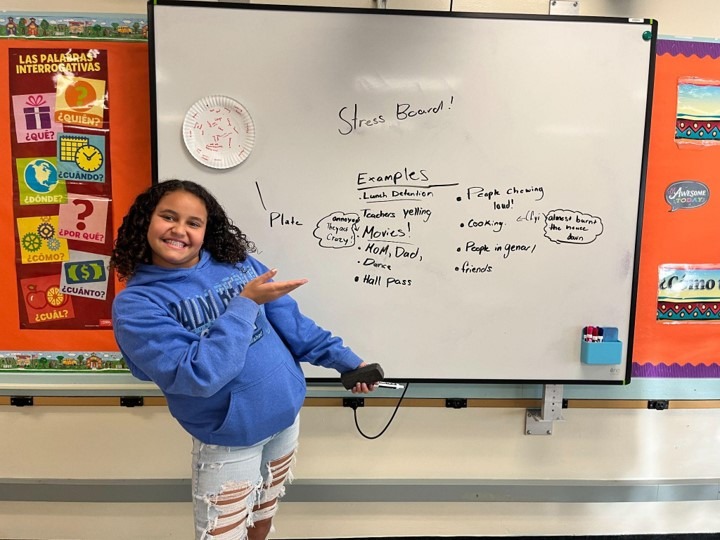 LAS PALABRAS
INTERROGATIVAS
¿QUÉ?
¿QUIÉN?
¿DÓNDE?
¿CUÁNDO?
¿CÓMO?
¿POR QUÉ?
¿CUÁL?
¿CUÁNTO?
Stress Board!
Plate
Examples
• Lunch Detention
Teachers yelling
annoyed
Crazy!
Movies!
• Mom, Dad,
• Dance
• Hall pass
• People chewing
loud!
• Cooking
(fyi)
almost burnt
the house
down
• People in genarl
• friends
PALM
AWESOME
TODAY!
¿Cómo